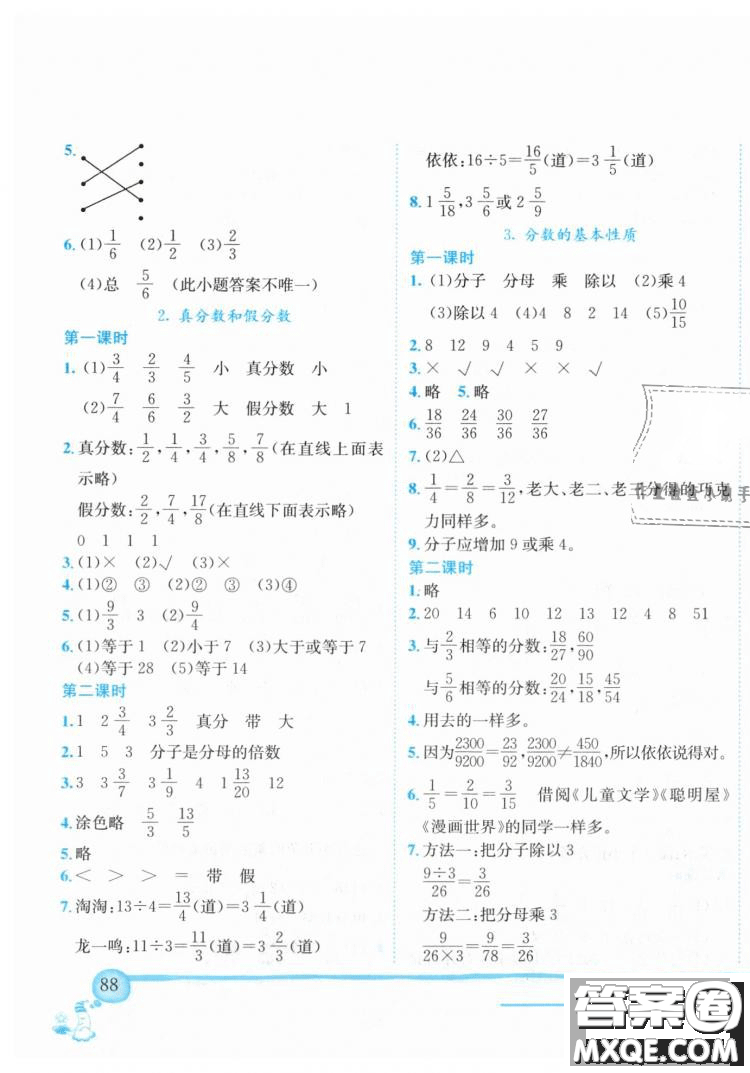 5.
6. (1) 1/6 (2) 1/2 (3) 2/3
(4)总 5/6 (此小题答案不唯一)
2. 真分数和假分数
第一课时
1. (1) 3/4 2/3 4/5 小 真分数 小
(2) 7/4 6/6 3/2 大 假分数 大 1
2. 真分数: 1/2, 1/4, 3/4, 5/8, 7/8 (在直线上面表
示略)
假分数: 2/2, 7/4, 17/8 (在直线下面表示略)
0 1 1 1
3. (1)× (2)√ (3)×
4. (1)② ③ (2)③ (3)④
5. (1) 9/3 3 (2) 9/4
6. (1)等于1 (2)小于7 (3)大于或等于7
(4)等于28 (5)等于14
第二课时
1. 1 2 3/4 3 2/3 真分 带 大
2. 1 5 3 分子是分母的倍数
3. 3 3 3/7 3 1/9 4 1 13/20 12
4. 涂色略 5/3 13/5
5. 略
6. < > > = 带 假
7. 淘淘:13÷4=13/4(道)=3 1/4(道)
龙一鸣:11÷3=11/3(道)=3 2/3(道)
88
依依:16÷5=16/5(道)=3 1/5(道)
8. 1 5/18, 3 5/6 或 2 5/9
3. 分数的基本性质
第一课时
1. (1)分子 分母 乘 除以 (2)乘4
(3)除以4 (4)4 8 2 14 (5) 10/15
2. 8 12 9 4 5
3. × √ √ × × √
4. 略 5. 略
6. 18/36 24/36 30/36 27/36
7. (2)△
8. 1/4=2/8=3/12, 老大、老二、老三分得的巧克
力同样多。
9. 分子应增加9或乘4。
第二课时
1. 略
2. 20 14 6 10 12 13 12 4 8 51
3. 与2/3相等的分数: 18/27, 60/90
与5/6相等的分数: 20/24, 15/18, 45/54
4. 用去的一样多。
5. 因为2300/9200=23/92, 2300/9200≠450/1840, 所以依依说得对。
6. 1/5=2/10=3/15 借阅《儿童文学》《聪明屋》
《漫画世界》的同学一样多。
7. 方法一:把分子除以3
9÷3/26=3/26
方法二:把分母乘3
9/26×3=9/78=3/26
作业检查小助手
答案圈
MXQE.COM